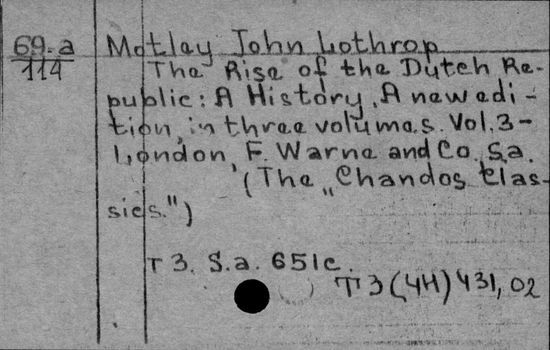 69-a Motley John Lothrop
114 The Rise of the Dutch Re-
public: A History. A new edi-
tion, in three volumes. Vol. 3-
London, F. Warne and Co. S.a.
(The „Chandos Clas-
sics.")
T 3. S.a. 651c.
T 3(4H) 431, 02